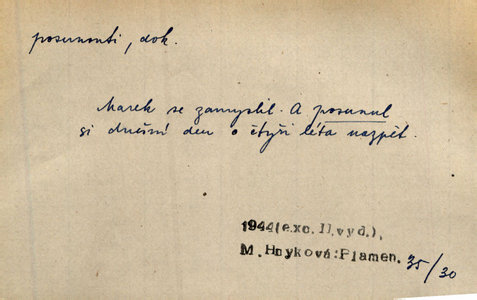 posunouti, dok.
Marek se zamyslil. A posunul
si dnešní den o čtyři léta nazpět.
1944(exc. II.vyd.),
M. Hnyková:Plamen. 35/30